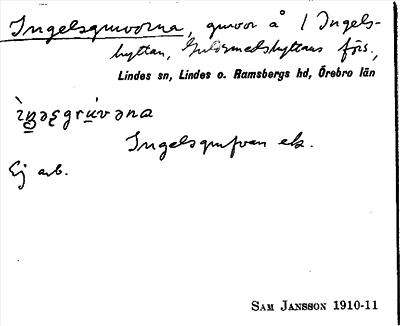 Ingelsgruvorna, gruvor å 1 Ingels-
hyttan, Guldsmedshyttans förs.,
Lindes sn, Lindes o. Ramsbergs hd, Örebro län
Ingelsgrufvan etc.
Ej arb.
SAM JANSSON 1910-11